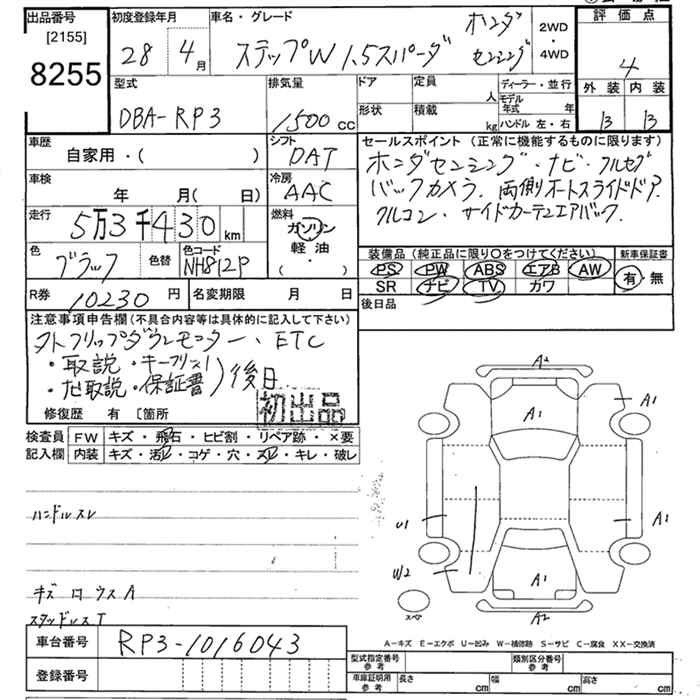 出品番号
[2155]
8255
初度登録年月
28 4月
車名・グレード
ステップW 1.5スパーダ ホンダセンシング
2WD
・
4WD
評価点
4
外装 内装
B B
型式
DBA-RP3
排気量
1500cc
ドア
形状
定員
人
積載
kg
ディーラー・並行
モデル年式 年
ハンドル 左・右
車歴
自家用・( )
シフト
DAT
車検
年 月( 日)
冷房
AAC
走行
5万3千430km
燃料
ガソリン
軽油
・( )
色
ブラック
色替
色コード
NH812P
R券
10230円
名変期限 月 日
セールスポイント(正常に機能するものに限ります)
ホンダセンシング・ナビ・フルセグ
バックカメラ. 両側オートスライドドア.
クルコン・サイドカーテンエアバック.
装備品(純正品に限り○をつけてください)
PS PW ABS エアB AW
SR ナビ TV カワ
新車保証書
有・無
後日品
注意事項申告欄(不具合内容等は具体的に記入して下さい)
外フリップダウンモニター、ETC
・取説・キーフリスト
・ナビ取説・保証書)後日
初出品
修復歴 有 〔箇所
検査員記入欄
FW キズ・飛石・ヒビ割・リペア跡・×要
内装 キズ・汚レ・コゲ・穴・スレ・キレ・破レ
ハンドルスレ
キズ ロ ウスA
スタッドレスT
A2
A1
A1
U1
A1
W2
A1
スペア
A2
A-キズ E-エクボ U-凹み W-補修跡 S-サビ C-腐食 XX-交換済
車台番号
RP3-1016043
登録番号
型式指定番号参考
類別区分番号参考
車庫証明用参考
長さ cm 幅 cm 高さ cm